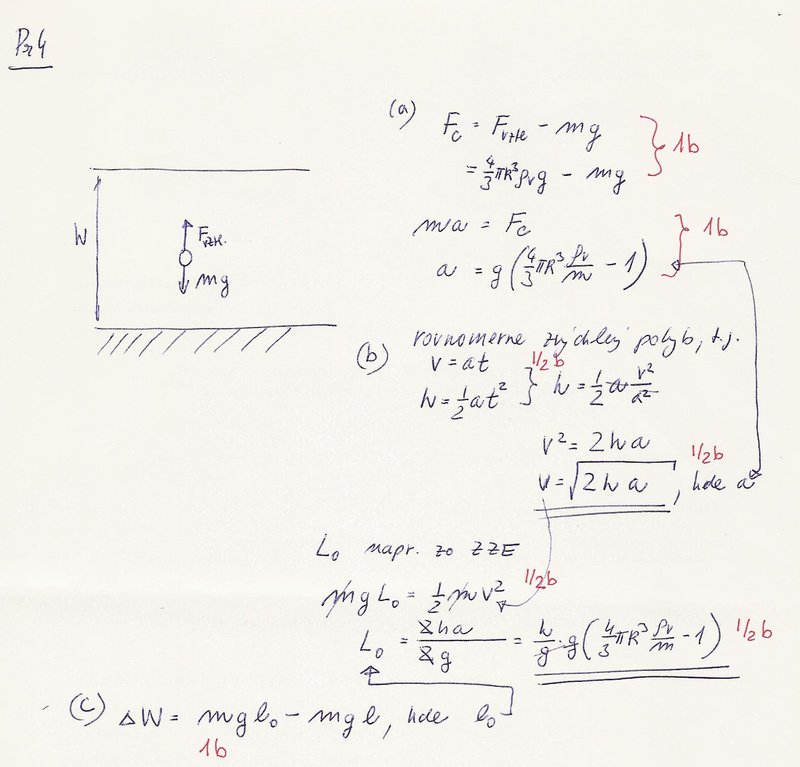 Pr 4
(a) F_c = F_vztl. - mg } 1b
= 4/3 πR³ρ_v g - mg
h
F_vztl.
mg
ma = F_c } 1b
a = g(4/3 πR³ ρ_v/m - 1)
(b) rovnomerne zrýchlený pohyb, t.j.
v = at 1/2 b
h = 1/2 at² } h = 1/2 a v²/a²
v² = 2ha
v = √(2ha), kde a 1/2 b
L₀ napr. zo ZZE
mgL₀ = 1/2 mv² 1/2 b
L₀ = 2ha/2g = h/g · g(4/3 πR³ ρ_v/m - 1) 1/2 b
(c) ΔW = mgl₀ - mgl, kde l₀
1b